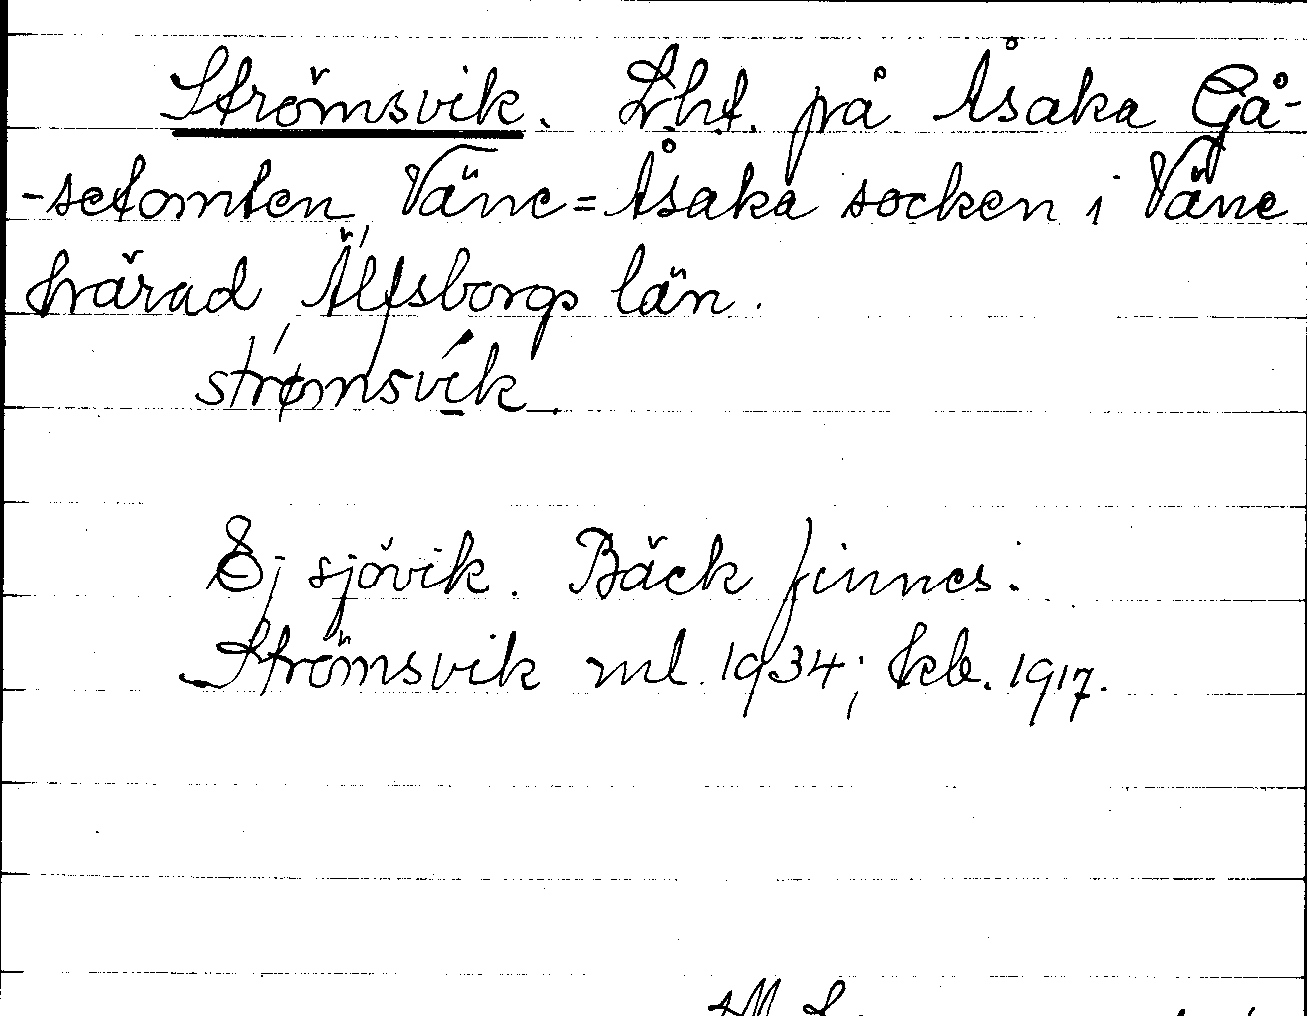 Strömsvik. Lht. på Åsaka Gå-
-setomten, Väne=Åsaka socken i Väne
härad, Älfsborgs län.
strømsvik.
Ej sjövik. Bäck finnes.
Strömsvik ml. 1934; kb. 1917.